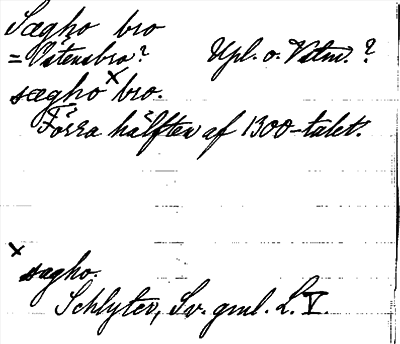 Sægho bro
= Östensbro? Upl. o. Vstm.?
sægho x bro.
Förra hälften af 1300-talet.
x
sagho.
Schlyter, Sv. gml. L. V.